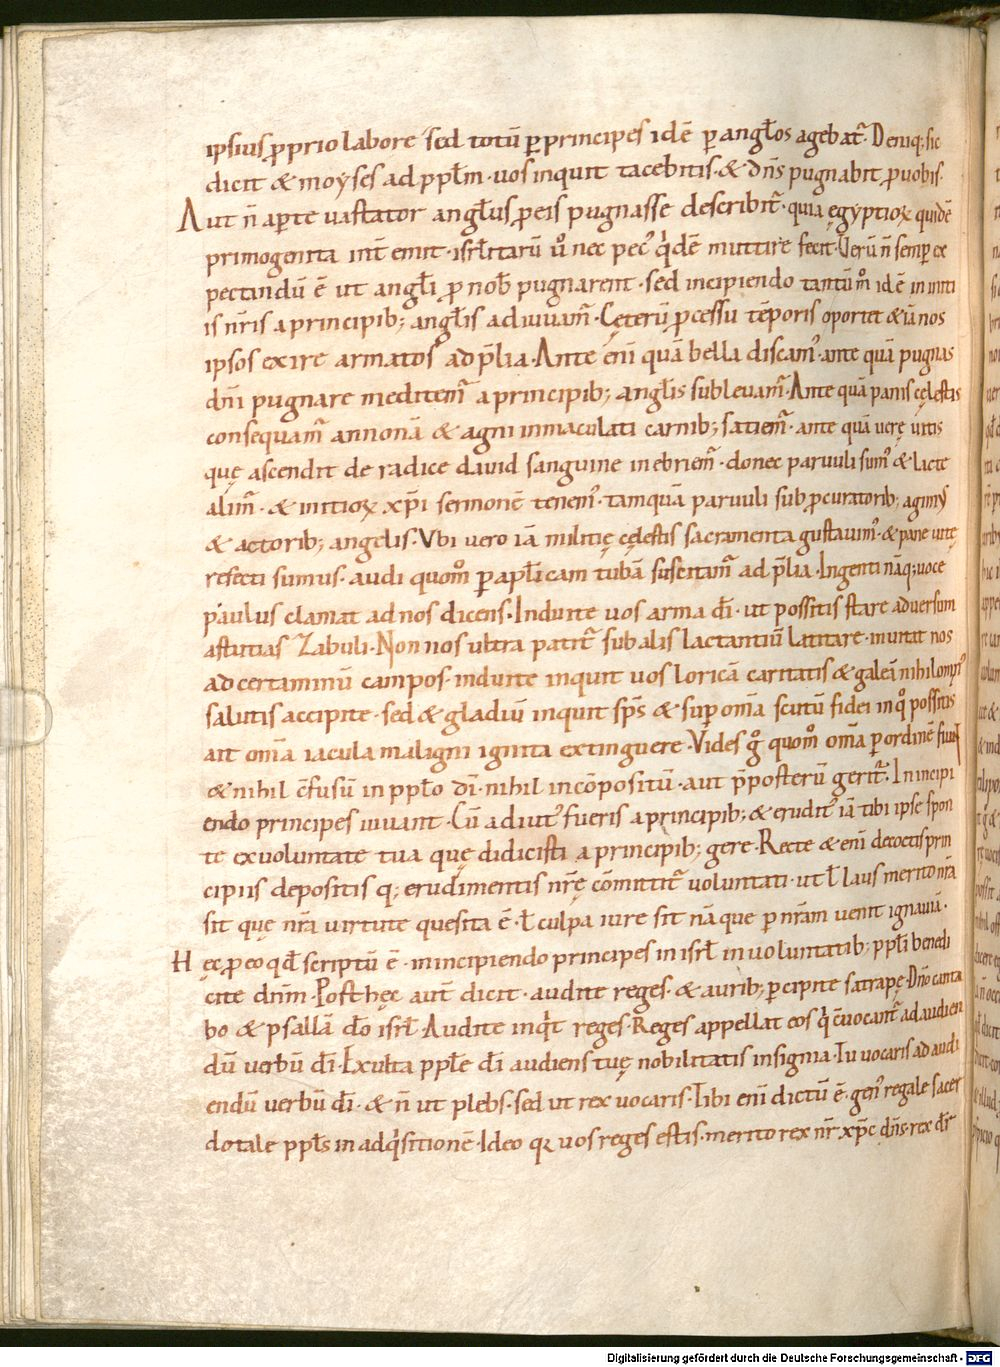 ipsius ꝓprio labore sed totū ꝑ principes idē ꝑ angl̄os agebat᷑. Deniq; sic
dicit & moẏses ad ppl̄m. vos inquit tacebitis. & dn̄s pugnabit ꝓ uobis.
Aut n̄ aꝑte vastator angl̄us ꝓ eis pugnasse describit᷑. quia ęgẏptioꝝ quidē
primogenita int̄ emit. isrl̄itarū ů nec pec᷒ q̇dē muttire fecit. Verū n̄ semꝑ ex
pectandū ē ut angl̄i ꝓ nob̄ pugnarent. sed incipiendo tantūm̊ idē in initi
is nr̄is a principib; angl̄is adiuuam᷑. Cęterū ꝓcessu tēporis oportet & iā nos
ipsos exire armatos ad p̄lia. Ante eni quā bella discam᷒. ante quā pugnas
dn̄i pugnare meditem᷑ a principib; angl̄is subleuam᷑. Ante quā panis cęlestis
consequam᷑ annonā & agni inmaculati carnib; satiem᷑. ante quā uerę uitis
quę ascendit de radice david sanguine inebriem᷑. donec paruuli sum᷒ & lacte
alim᷑. & initioꝝ xp̄i sermonē tenem᷒. tamquā paruuli sub ꝓcuratorib; agimus
& actorib; angelis. Vbi vero iā militię cęlestis sacramenta gustauim᷒. & pane uitę
refecti sumus. audi quom̊ ꝑ apl̄icam tubā suscitam᷑ ad p̄lia. Ingenti nāq; uoce
paulus clamat ad nos dicens. Induite uos arma dī. ut possitis stare aduersum
astutias Zabuli. Non nos ultra patit᷑ sub alis lactantiū latitare. inuitat nos
ad certaminū campos. induite inquit uos loricā caritatis & galeā
salutis accipite. sed & gladiū inquit sp̄s & suꝑ om̄a scutū fidei in q̊ possitis
ait om̄a iacula maligni ignita extinguere. Vides g̊ quom̊ om̄a ꝑ ordinē
& nihil c̄fusū in ppl̄o dī. nihil incōpositū. aut p̄posterū gerit᷑. In incipi
endo principes iuuant. Cū adiut᷒ fueris a principib; & erudit᷒ iā tibi ipse spon
te ex uoluntate tua quę didicisti a principib; gere. Recte & eni decoctis prin
cipiis depositis q; erudimentis nr̄ę cōmittit᷑ voluntati. ut ł laus merito nr̄a
sit quę nr̄a virtute quesita ē. ł culpa iure sit nāque ꝑ nr̄am uenit ignauiā.
Hęc ꝓ eo qd̄ scriptū ē. in incipiendo principes in isrl̄ in uoluntatib; ppl̄i benedi
cite dnm̄. Post hęc aut̄ dicit. audite reges. & aurib; ꝑcipite satrapę. Dn̄o canta
bo & psallā dō isrl̄. Audite inq̇t reges. Reges appellat eos q̇ c̄uocant᷑ ad audien
dū verbū dī. Exulta pple dī audiens tuę nobilitatis insignia. Tu vocaris ad audi
endū uerbū dī. & n̄ ut plebs. sed ut rex uocaris. Tibi eni dictū ē. gen᷒ regale sacer
dotale ppl̄s in adq̇sitionē. Ideo qꝛ uos reges estis. merito rex nr̄ xp̄c dn̄s. rex dr̄